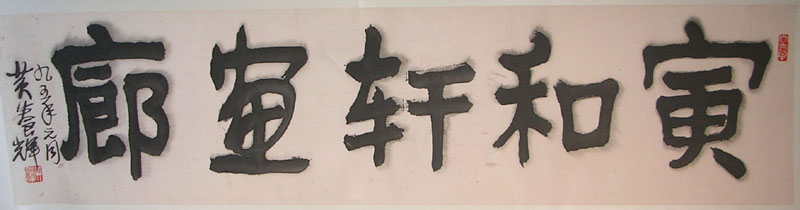 寅和轩画廊
九五年元月
黄养辉